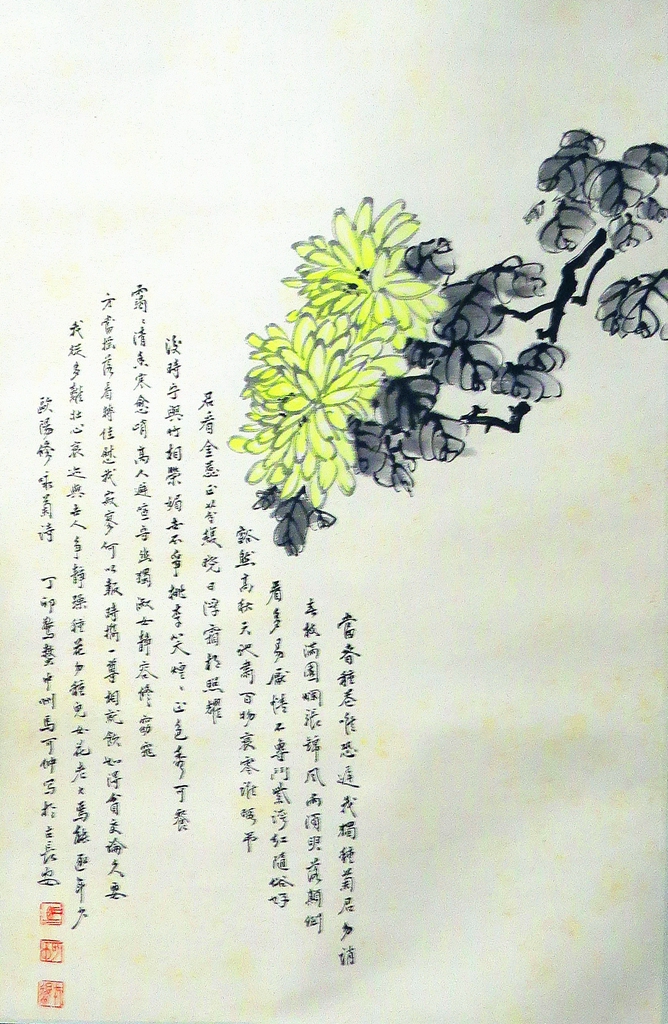 當春種花唯恐遲我獨種菊君勿誚
春枝滿園爛張錦風雨須臾落顛倒
看多易厭情不專鬥紫誇紅隨俗好
豁然高秋天地肅百物衰零誰暇弔
君看金蕊正芬馥曉日浮霜相照耀
後時寧與竹相榮媚世不爭桃李笑煌〻正色秀可餐
靄〻清香寒愈峭高人避喧守幽獨淑女靜容修窈窕
方當搖落看轉佳慰我寂寥何以報時攜一尊相就飲如得貧交論久要
我從多難壯心衰迹與世人爭靜躁種花勿種兒女花老大焉能逐年少
歐陽修咏菊詩 丁卯驚蟄中州馬可仲寫於古長安